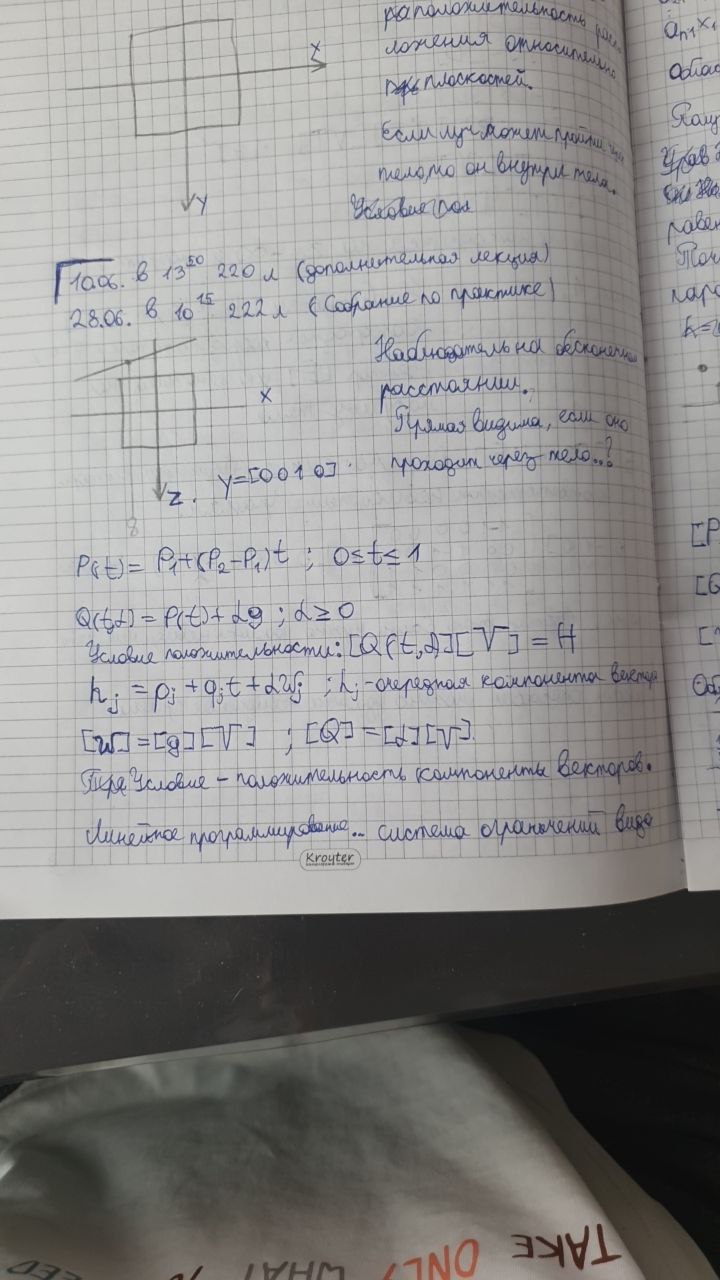 X
Y
расположения относительно
плоскостей.
Если луч может пройти
тело, то он внутри тела.
Условие
10.06. в 13⁵⁰ 220 л (дополнительная лекция)
28.06. в 10¹⁵ 222 л (Собрание по практике)
Наблюдатель на бесконечном
расстоянии.
X
Прямая видима, если она
проходит через тело..?
Z. Y=[0 0 1 0].
P(t) = P₁+(P₂-P₁)t ; 0≤t≤1
Q(t,α) = P(t) + αg ; α ≥ 0
Условие положительности: [Q(t,α)][V] = H
hⱼ = pⱼ + qⱼt + αwⱼ ; hⱼ - очередная компонента вектора
[w] = [g][V] ; [Q] = [d][V]
Условие - положительность компоненты векторов.
Линейное программирование.. система ограничений вида
Kroyter
an1x1
равен
[P
[G
TAKE ONLY WHAT
EED